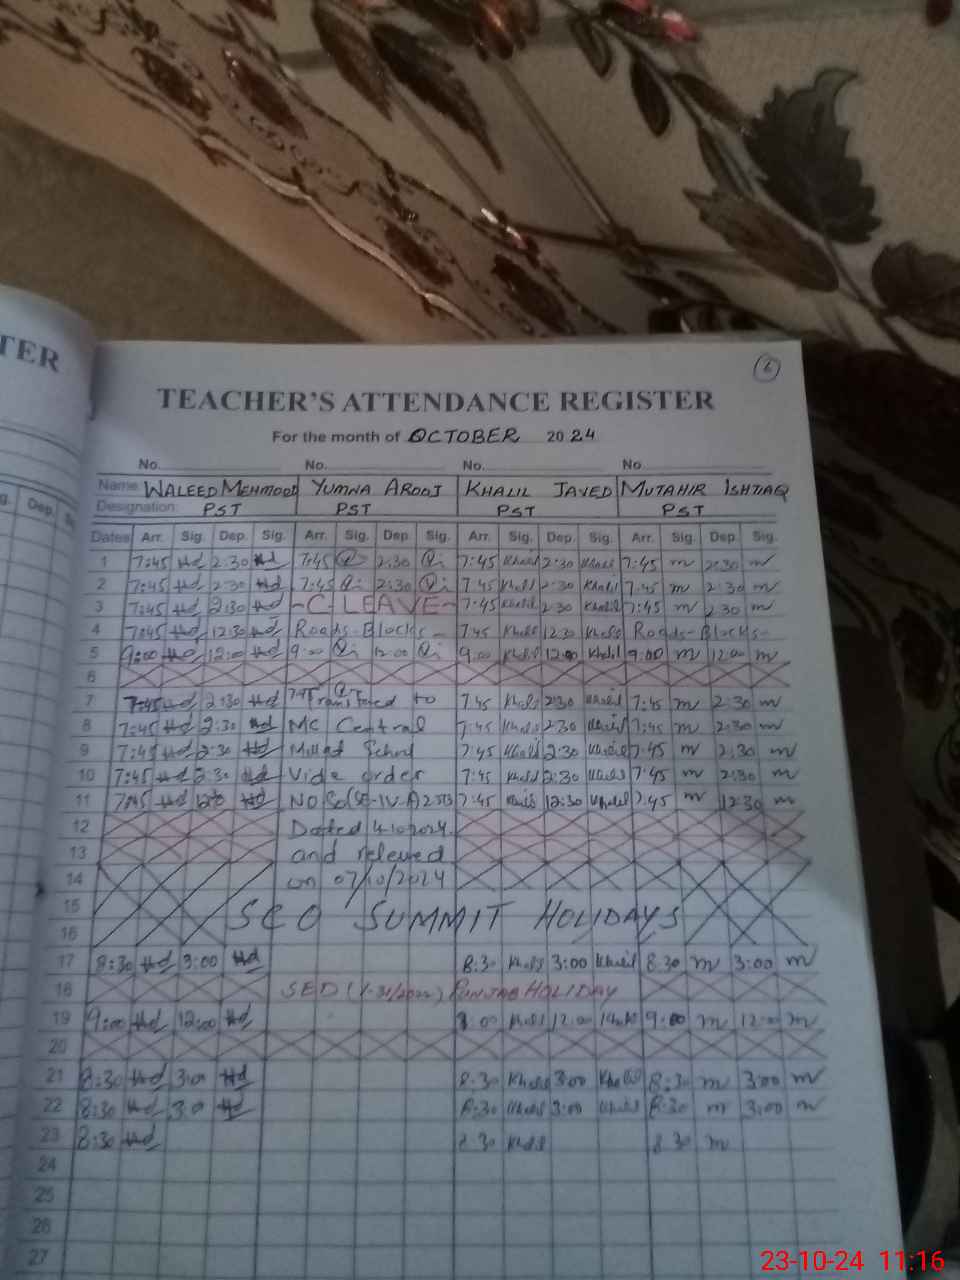 TER
6
TEACHER'S ATTENDANCE REGISTER
For the month of OCTOBER 2024
No. No. No. No.
Name: WALEED MEHMOOD YUMNA AROOJ KHALIL JAVED MUTAHIR ISHTIAQ
Designation: PST PST PST PST
g. Dep. Dates Arr. Sig. Dep. Sig. Arr. Sig. Dep. Sig. Arr. Sig. Dep. Sig. Arr. Sig. Dep. Sig.
1 7:45 2:30 7:45 2:30 7:45 Khalil 2:30 Khalil 7:45 m 2:30 m
2 7:45 2:30 7:45 2:30 7:45 Khalil 2:30 Khalil 7:45 m 2:30 m
3 7:45 2:30 -C-LEAVE- 7:45 Khalil 2:30 Khalil 7:45 m 2:30 m
4 7:45 12:30 Roads-Blocks- 7:45 Khalil 12:30 Khalil Roads-Blocks-
5 9:00 12:00 9:00 12:00 9:00 Khalil 12:00 Khalil 9:00 m 12:00 m
6
7 7:45 2:30 7:45 Transfered to 7:45 Khalil 2:30 Khalil 7:45 m 2:30 m
8 7:45 2:30 MC Central 7:45 Khalil 2:30 Khalil 7:45 m 2:30 m
9 7:45 2:30 Millat School 7:45 Khalil 2:30 Khalil 7:45 m 2:30 m
10 7:45 2:30 Vide order 7:45 Khalil 2:30 Khalil 7:45 m 2:30 m
11 7:45 NO 7:45 Khalil 12:30 Khalil 7:45 m 12:30 m
12 Dated 4.10.2024
13 and releived
14 on 07/10/2024
15
SCO SUMMIT HOLIDAYS
16
17 8:30 3:00 8:30 Khalil 3:00 Khalil 8:30 m 3:00 m
18 SED (1-31/2022) PUNJAB HOLIDAY
19 9:00 12:00 9:00 Khalil 12:00 Khalil 9:00 m 12:00 m
20
21 8:30 3:00 8:30 Khalil 3:00 Khalil 8:30 m 3:00 m
22 8:30 3:0 8:30 Khalil 3:00 Khalil 8:30 m 3:00 m
23 8:30 8:30 Khalil 8:30 m
24
25
26
27
23-10-24 11:16